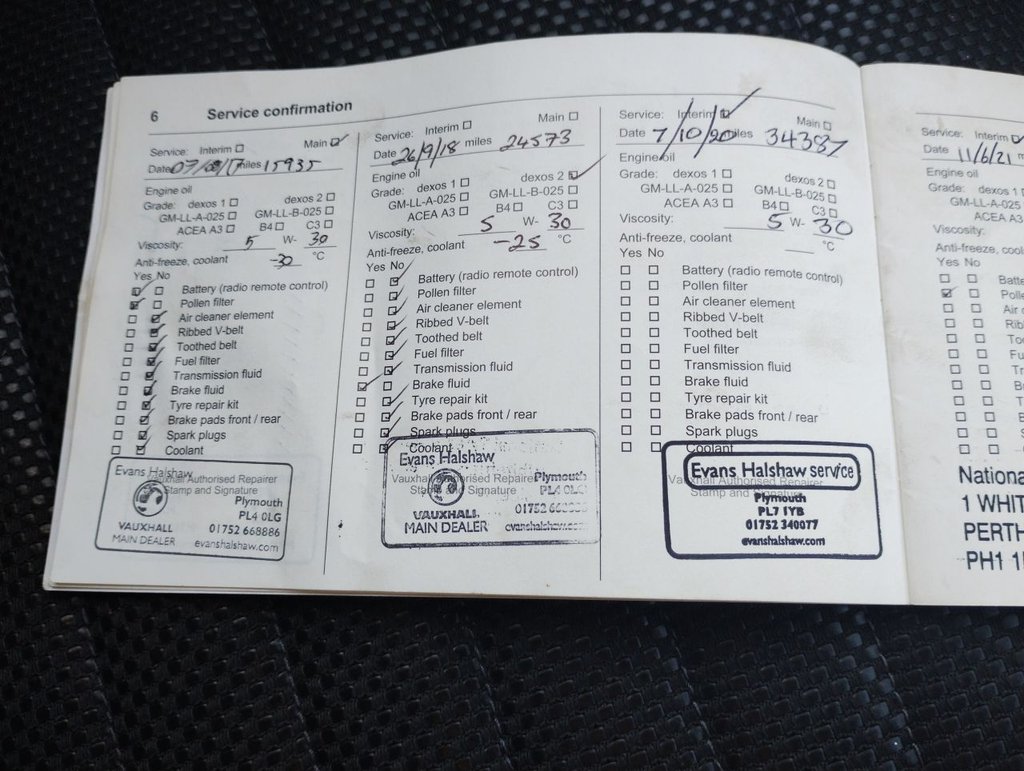 6 Service confirmation
Service: Interim Main
Date 07/08/17 miles 15935
Engine oil
Grade: dexos 1 dexos 2
GM-LL-A-025 GM-LL-B-025
ACEA A3 B4 C3
Viscosity: 5 W- 30
Anti-freeze, coolant -30 °C
Yes No
Battery (radio remote control)
Pollen filter
Air cleaner element
Ribbed V-belt
Toothed belt
Fuel filter
Transmission fluid
Brake fluid
Tyre repair kit
Brake pads front / rear
Spark plugs
Coolant
Vauxhall Authorised Repairer
Stamp and Signature
Evans Halshaw
Plymouth
PL4 0LG
VAUXHALL 01752 668886
MAIN DEALER evanshalshaw.com
Service: Interim Main
Date 26/9/18 miles 24573
Engine oil
Grade: dexos 1 dexos 2
GM-LL-A-025 GM-LL-B-025
ACEA A3 B4 C3
Viscosity: 5 W- 30
Anti-freeze, coolant -25 °C
Yes No
Battery (radio remote control)
Pollen filter
Air cleaner element
Ribbed V-belt
Toothed belt
Fuel filter
Transmission fluid
Brake fluid
Tyre repair kit
Brake pads front / rear
Spark plugs
Coolant
Vauxhall Authorised Repairer
Stamp and Signature
Evans Halshaw
Plymouth
PL4 0LG
VAUXHALL 01752
MAIN DEALER evanshalshaw.com
Service: Interim Main
Date 7/10/20 miles 34387
Engine oil
Grade: dexos 1 dexos 2
GM-LL-A-025 GM-LL-B-025
ACEA A3 B4 C3
Viscosity: 5 W- 30
Anti-freeze, coolant °C
Yes No
Battery (radio remote control)
Pollen filter
Air cleaner element
Ribbed V-belt
Toothed belt
Fuel filter
Transmission fluid
Brake fluid
Tyre repair kit
Brake pads front / rear
Spark plugs
Coolant
Authorised Repairer
Stamp and
Evans Halshaw service
Plymouth
PL7 1YB
01752 340077
evanshalshaw.com
Service: Interim
Date 11/6/21
Engine oil
Grade: dexos 1
GM-LL-A-025
ACEA A3
Viscosity:
Anti-freeze, coolant
Yes No
Nationa
1 WHIT
PERTH
PH1 1